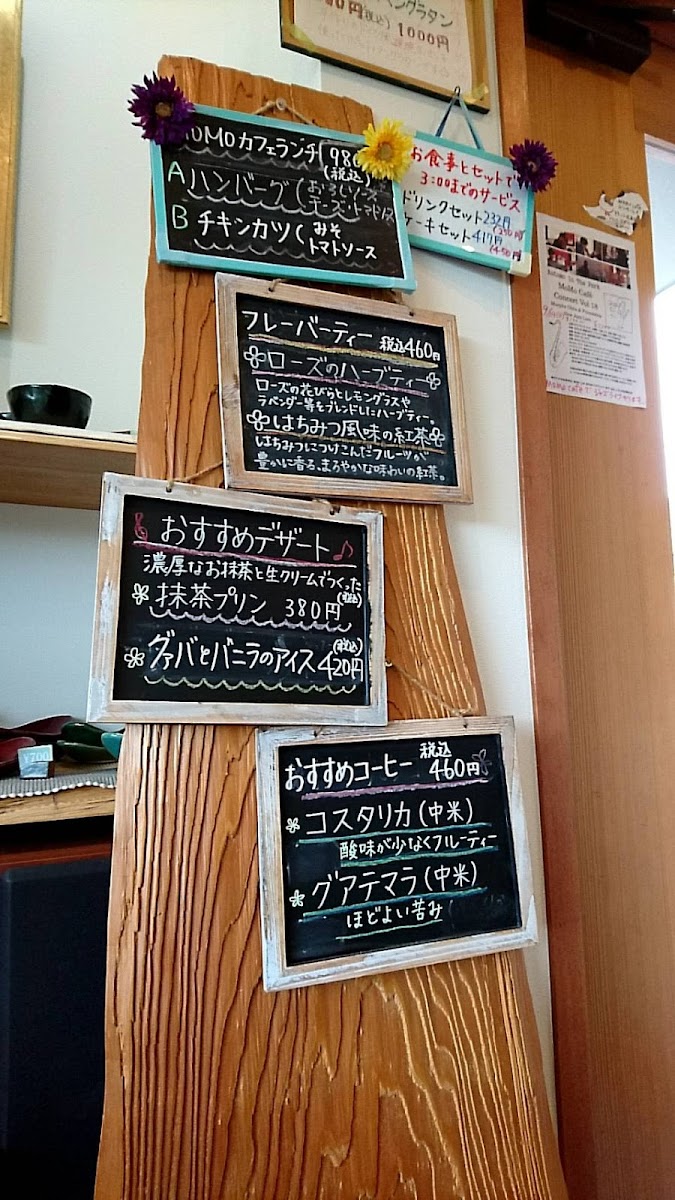 ングラタン
00円(税込) 1000円
MOMOカフェランチ 980
(税込)
A ハンバーグ(おろしソース
チーズ・トマトソース
B チキンカツ(みそ
トマトソース
お食事とセットで
3:00までのサービス
ドリンクセット232円
(250円)
ケーキセット417円
(450円)
フレーバーティー 税込460円
ローズのハーブティー
ローズの花びらとレモングラスや
ラベンダー等をブレンドしたハーブティー。
はちみつ風味の紅茶
はちみつにつけこんだフルーツが
豊かに香る、まろやかな味わいの紅茶。
おすすめデザート♪
濃厚なお抹茶と生クリームでつくった
抹茶プリン 380円(税込)
グァバとバニラのアイス420円(税込)
おすすめコーヒー 税込460円
コスタリカ(中米)
酸味が少なくフルーティー
グアテマラ(中米)
ほどよい苦み
Autumn In The Park
MoMo Café
Concert Vol 18
¥700